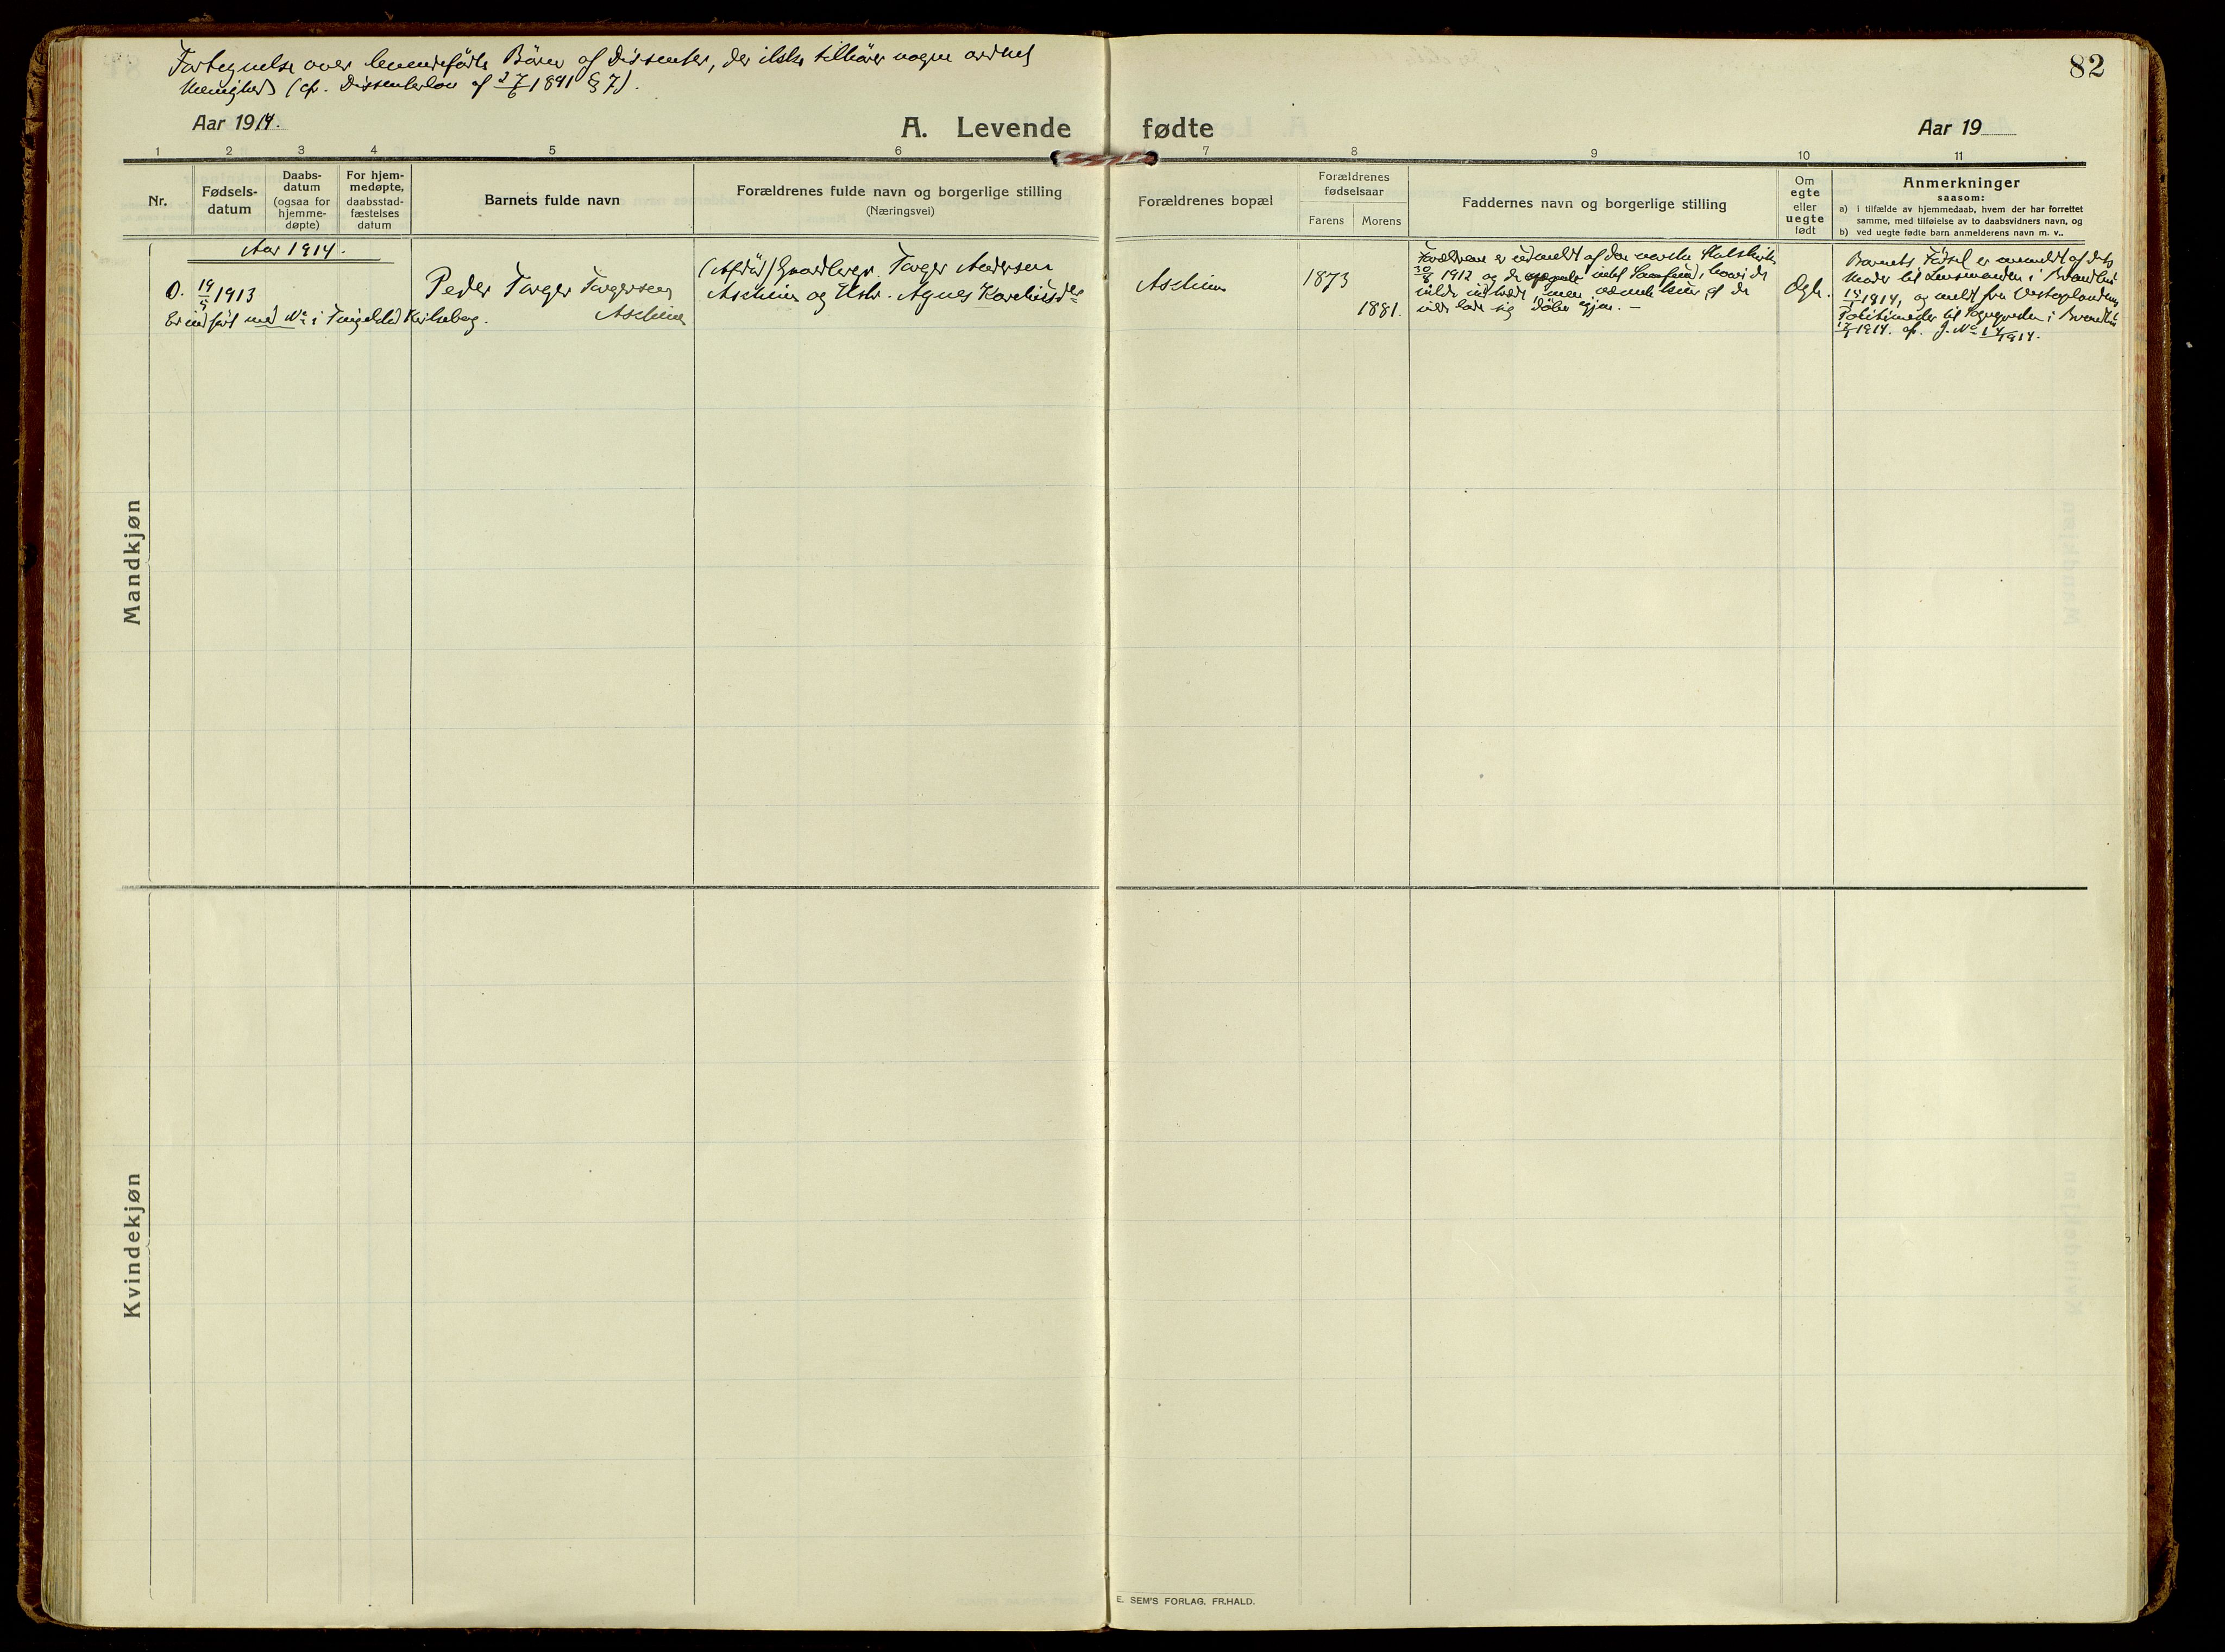 Fortegnelse over levendefødte Börn af Dissenter, der ikke tilhører nogen ordnet
Menighed (cfr. Dissenterlov af 27/6 1891 § 7).
82
Aar 1914.
A. Levende fødte
Aar 19
1 2 3 4 5 6 7 8 9 10 11
Nr.
Fødsels-
datum
Daabs-
datum
(ogsaa for
hjemme-
døpte)
For hjem-
medøpte,
daabsstad-
fæstelses
datum
Barnets fulde navn
Forældrenes fulde navn og borgerlige stilling
(Næringsvei)
Forældrenes bopæl
Forældrenes
fødselsaar
Farens Morens
Faddernes navn og borgerlige stilling
Om
egte
eller
uegte
født
Anmerkninger
saasom:
a) i tilfælde av hjemmedaab, hvem der har forrettet
samme, med tilføielse av to daabsvidners navn, og
b) ved uegte fødte barn anmelderens navn m. v..
Aar 1914.
0. 19/5 1913
Er indført med No i Tingelstad Kirkebog.
Peder Torger Torgersen
Aschim
(Afdød) Gaardbrgr. Torger Andersen
Aschim og Hstr. Agnes Kareliusdtr
Aschim
1873
1881.
Forældrene er udmeldt af den norske Statskirke
30/8 1912 og de intet Samfund, hvori de
vilde indtræde, men af de
vilde lade sig døbe igjen. —
Ægte.
Barnets Fødsel er anmeldt af dets
Moder til Lensmanden i Brandbu
15/1 1914, og meldt fra Vestoplandenes
Politimester til Sognepresten i Brandbu
17/1 1914. cfr. J. No 14/1914.
Mandkjøn
Kvindekjøn
E. SEM'S FORLAG, FR.HALD.